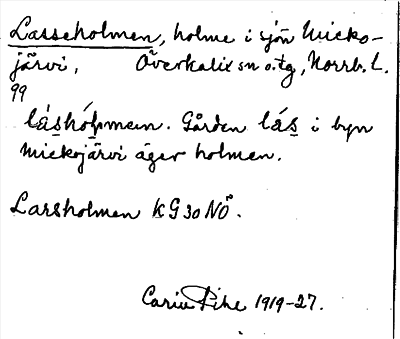 Lasseholmen, holme i sjön Micko-
järvi, Överkalix sn o. tg, Norrb. L.
99
lá̱shólmen. Gården lás̱ i byn
Mickojärvi äger holmen.
Larsholmen KG 30 NÖ.
Carin Pihl 1919-27.